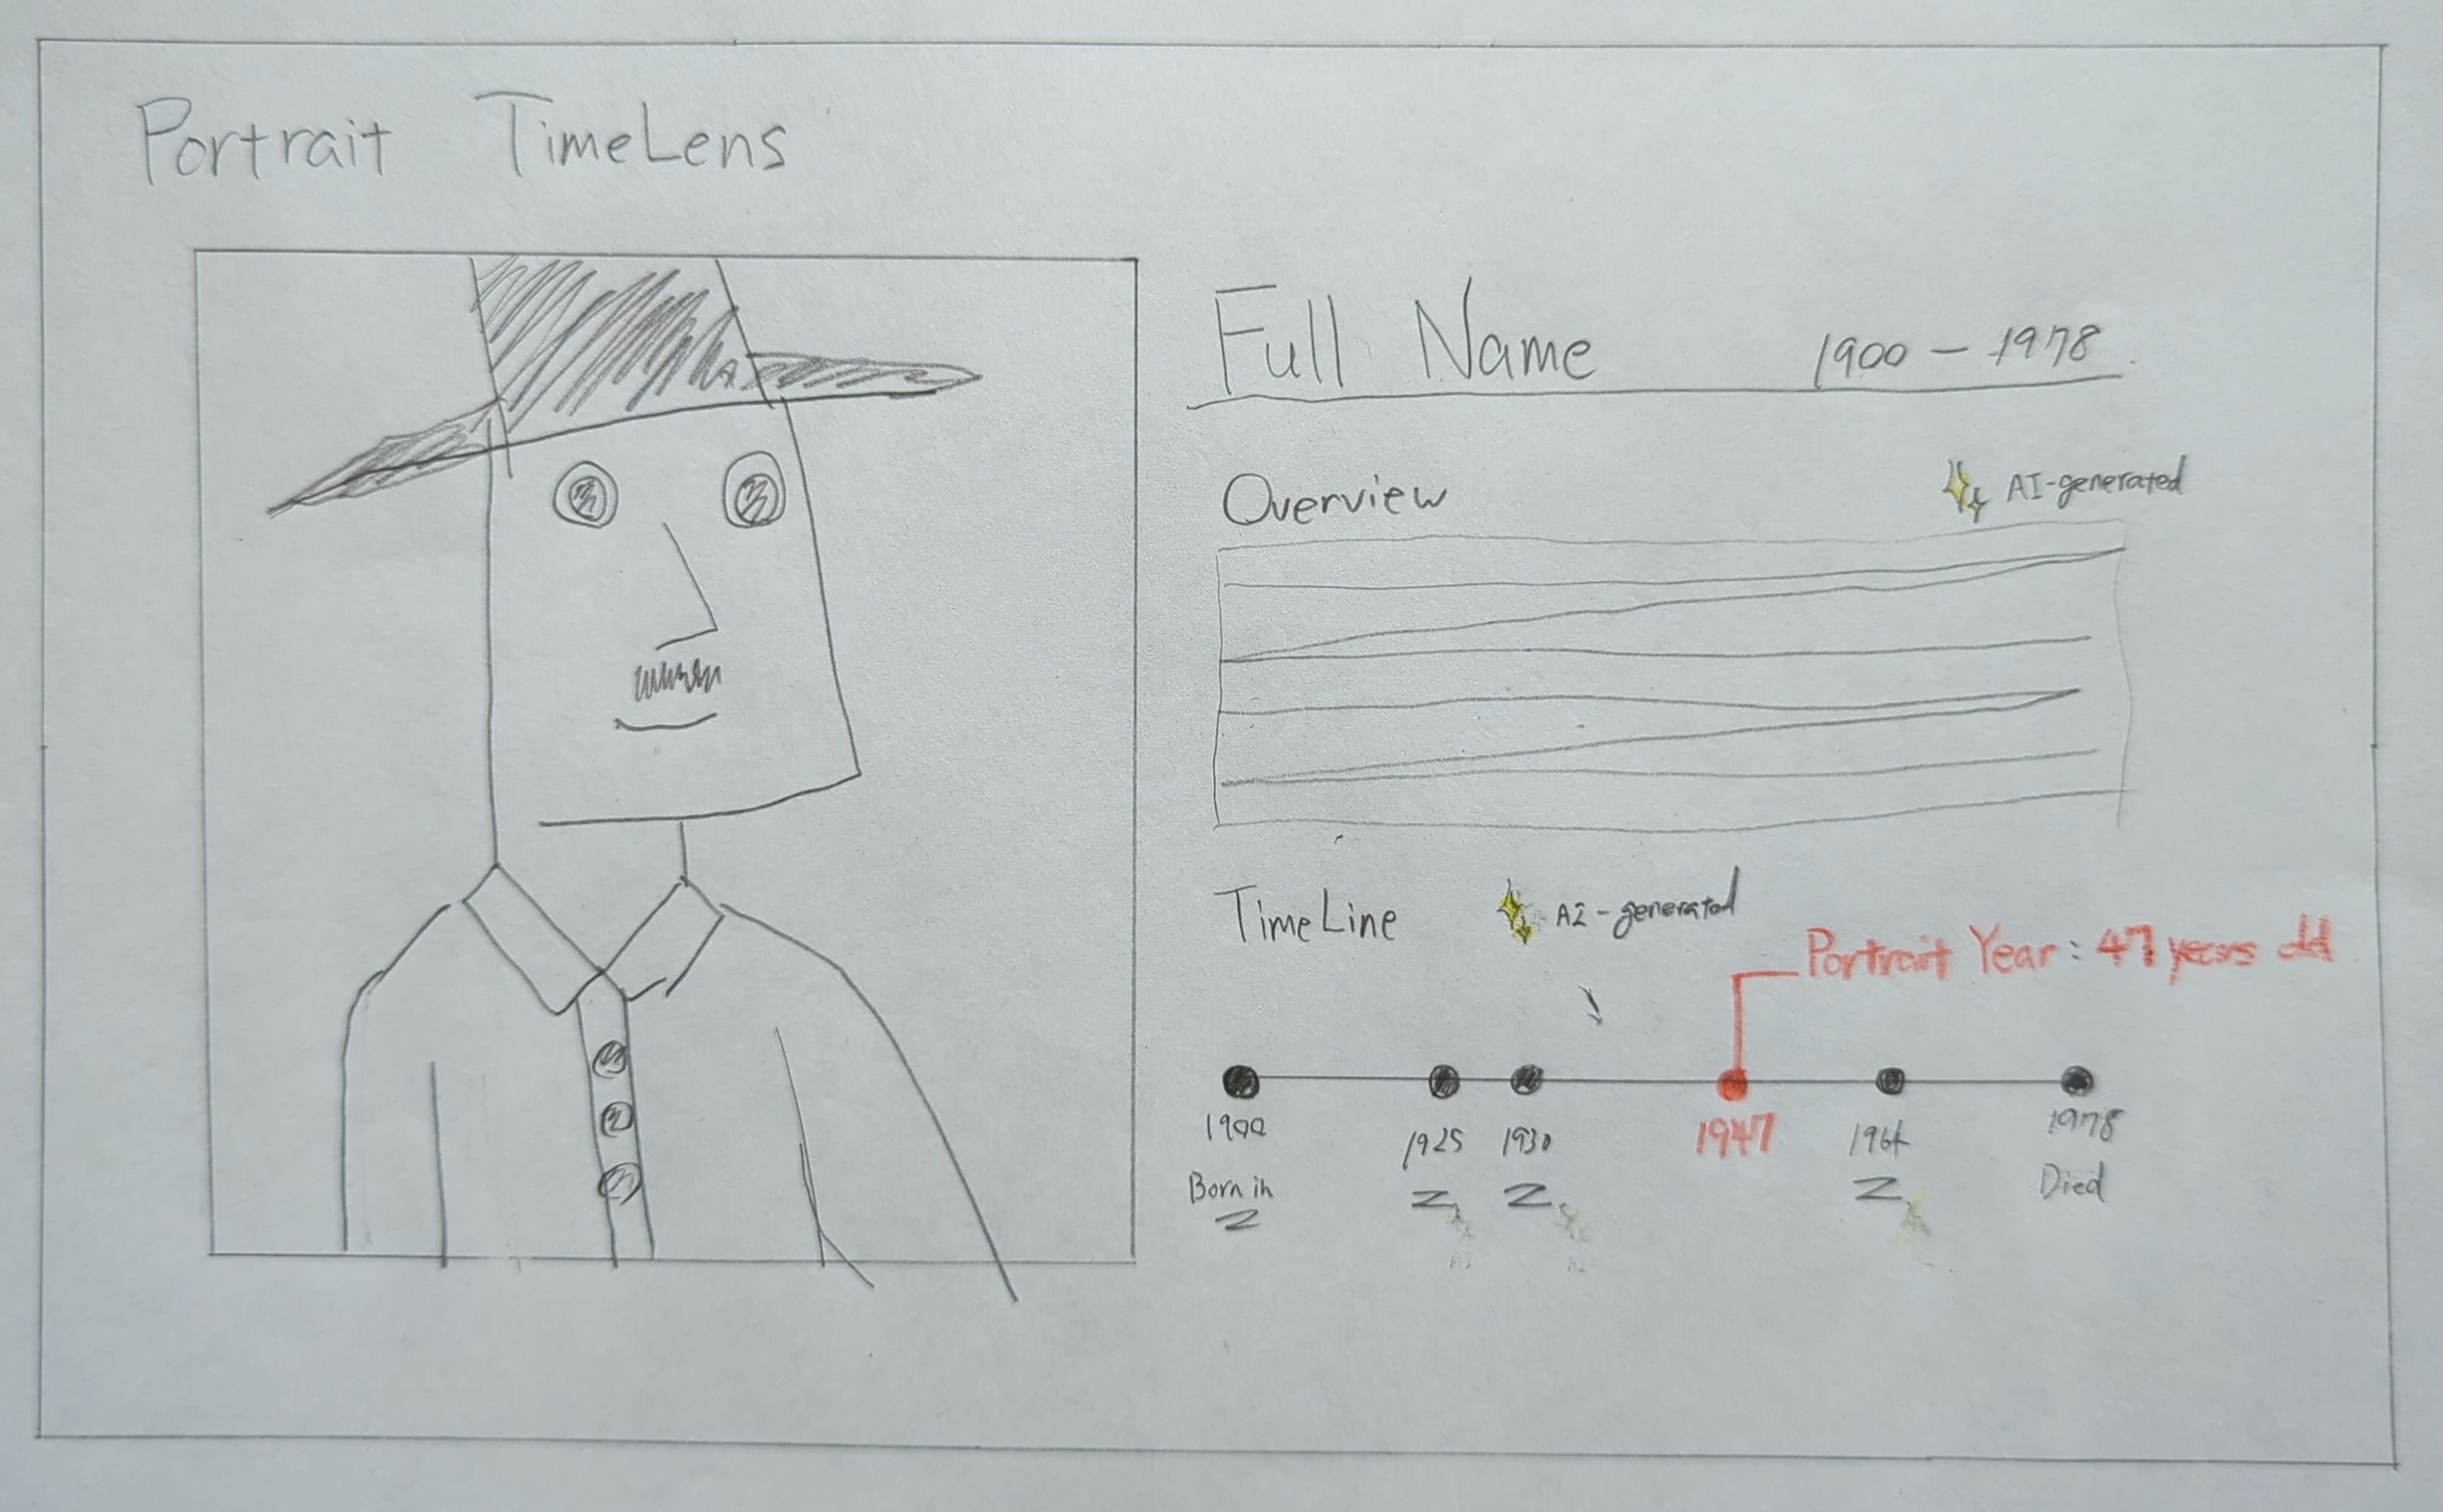 Portrait TimeLens
Full Name 1900 - 1978
Overview
AI-generated
TimeLine
AI-generated
Portrait Year: 47 years old
1900
1925
1930
1947
1964
1978
Born in
Died
AI
AI